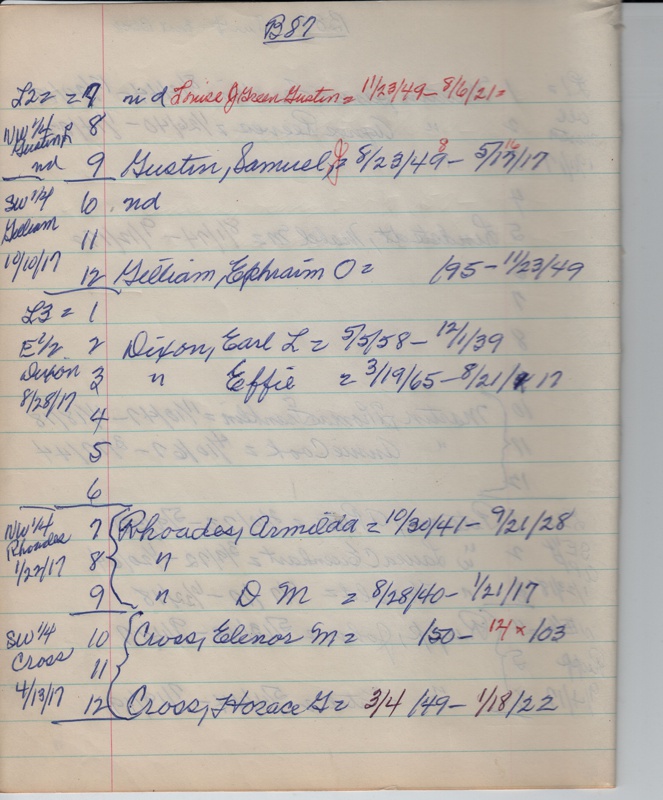 B87
L2 = 7 nd Louise J Green Gustin = 11/23/49 - 8/6/21 =
NW 1/4 8
Gustin L
nd 9 Gustin, Samuel J = 8/23/49 8 - 5/17/17 16
SW 1/4 6 nd
Gilliam 11
10/10/17 12 Gilliam, Ephraim O = /95 - 11/23/49
L3 = 1
E 1/2 2 Dixon, Earl L = 5/5/58 - 12/1/39
Dixon 3 " Effie = 3/19/65 - 8/21/17
8/28/17 4
5
6
NW 1/4 7 Rhoades, Armilda = 10/30/41 - 9/21/28
Rhoades 8 "
1/22/17 9 " D M = 8/28/40 - 1/21/17
SW 1/4 10 Cross, Elenor M = /50 - 12 x /03
Cross 11
4/13/17 12 Cross, Horace G = 3/4/49 - 1/18/22